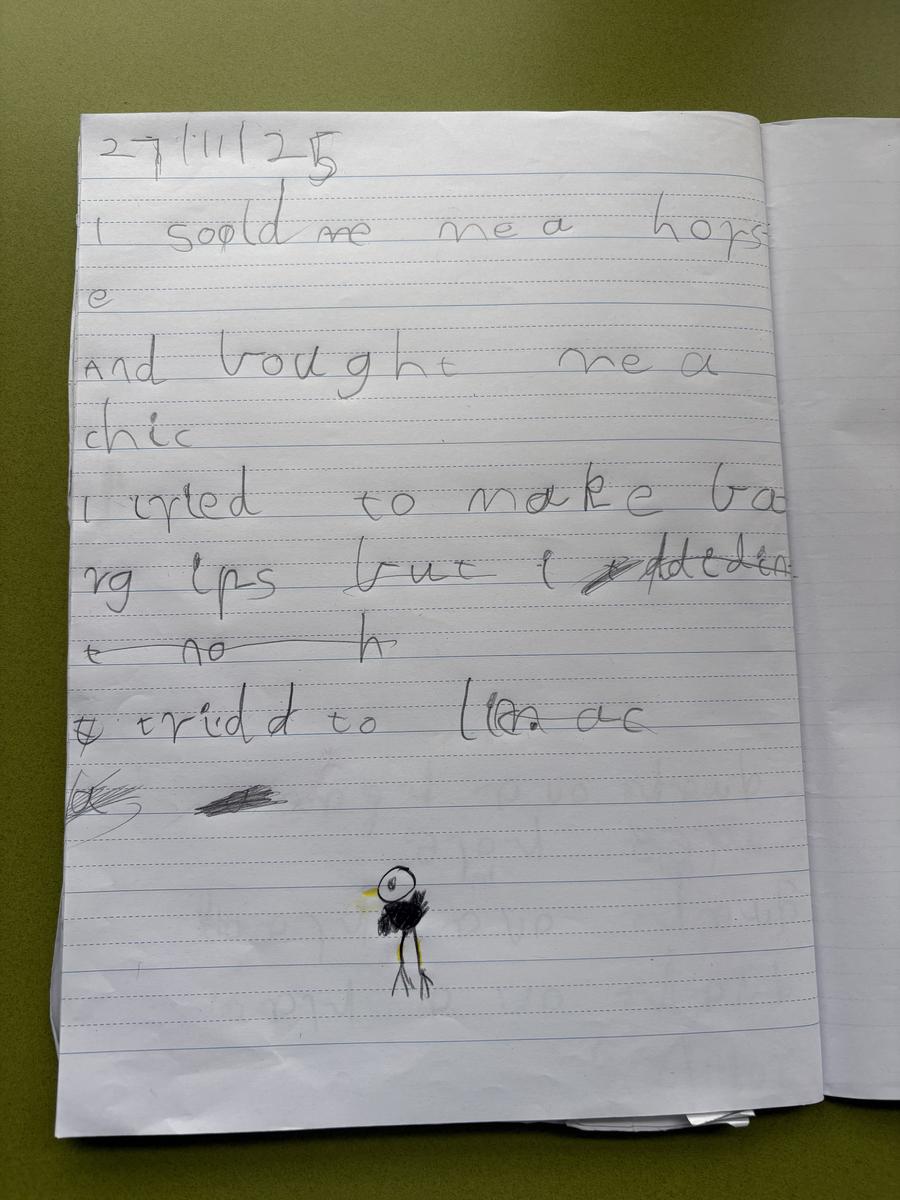 27/11/25
I soold me me a hors
e
And bought me a
chic
I tried to make ba
rg ips but I addedin
t no h
t tridd to ac